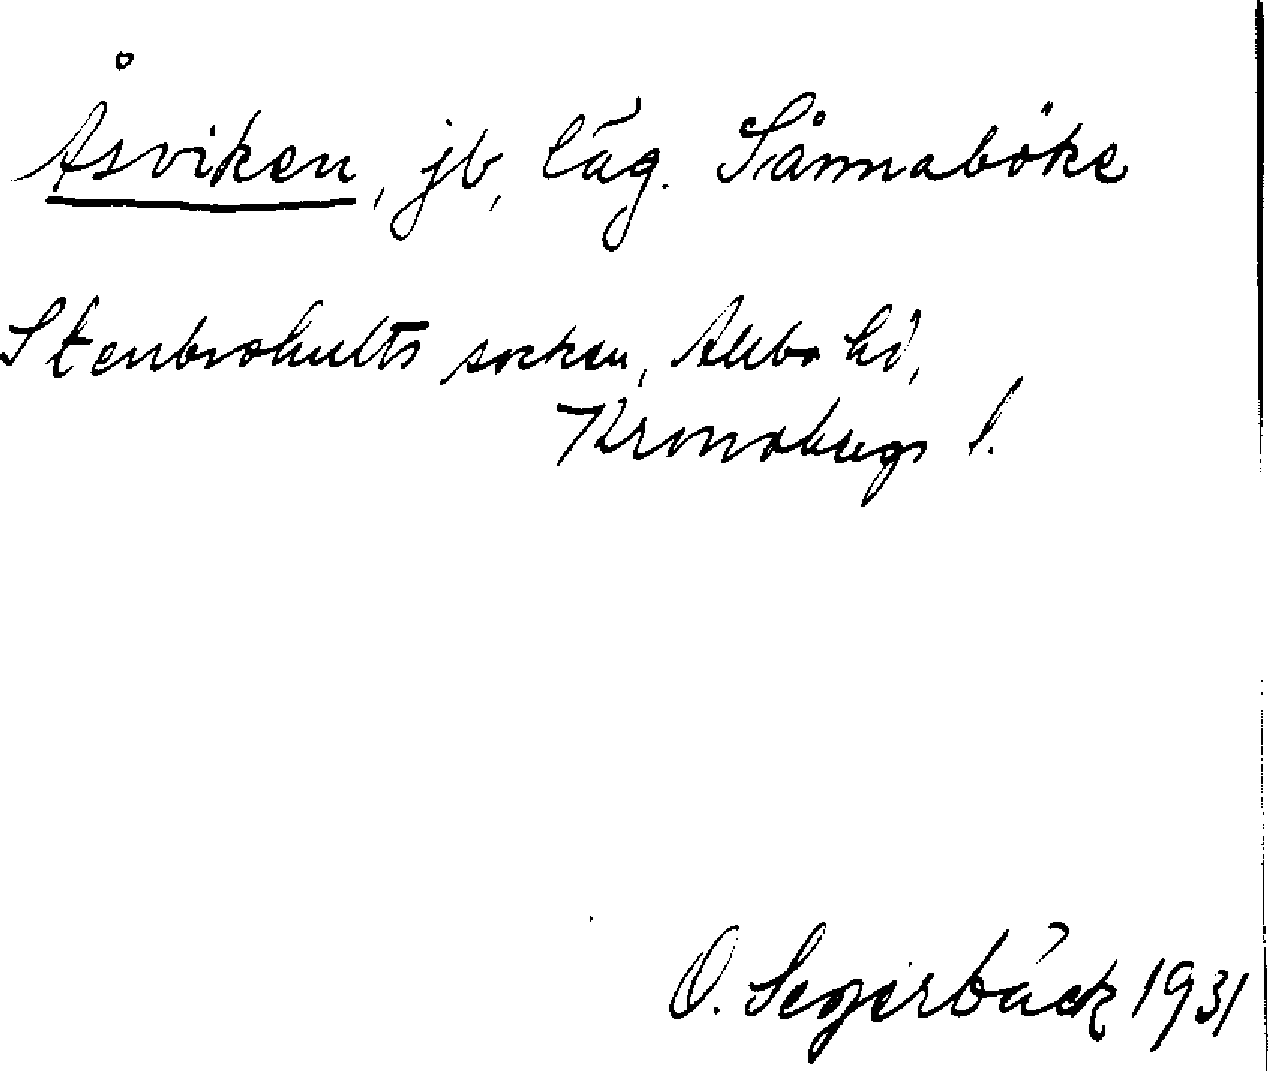 Åsviken, jb, läg. Sånnaböke
Stenbrohults socken, Allbo hd,
Kronobergs l.
O. Segerbäck 1931